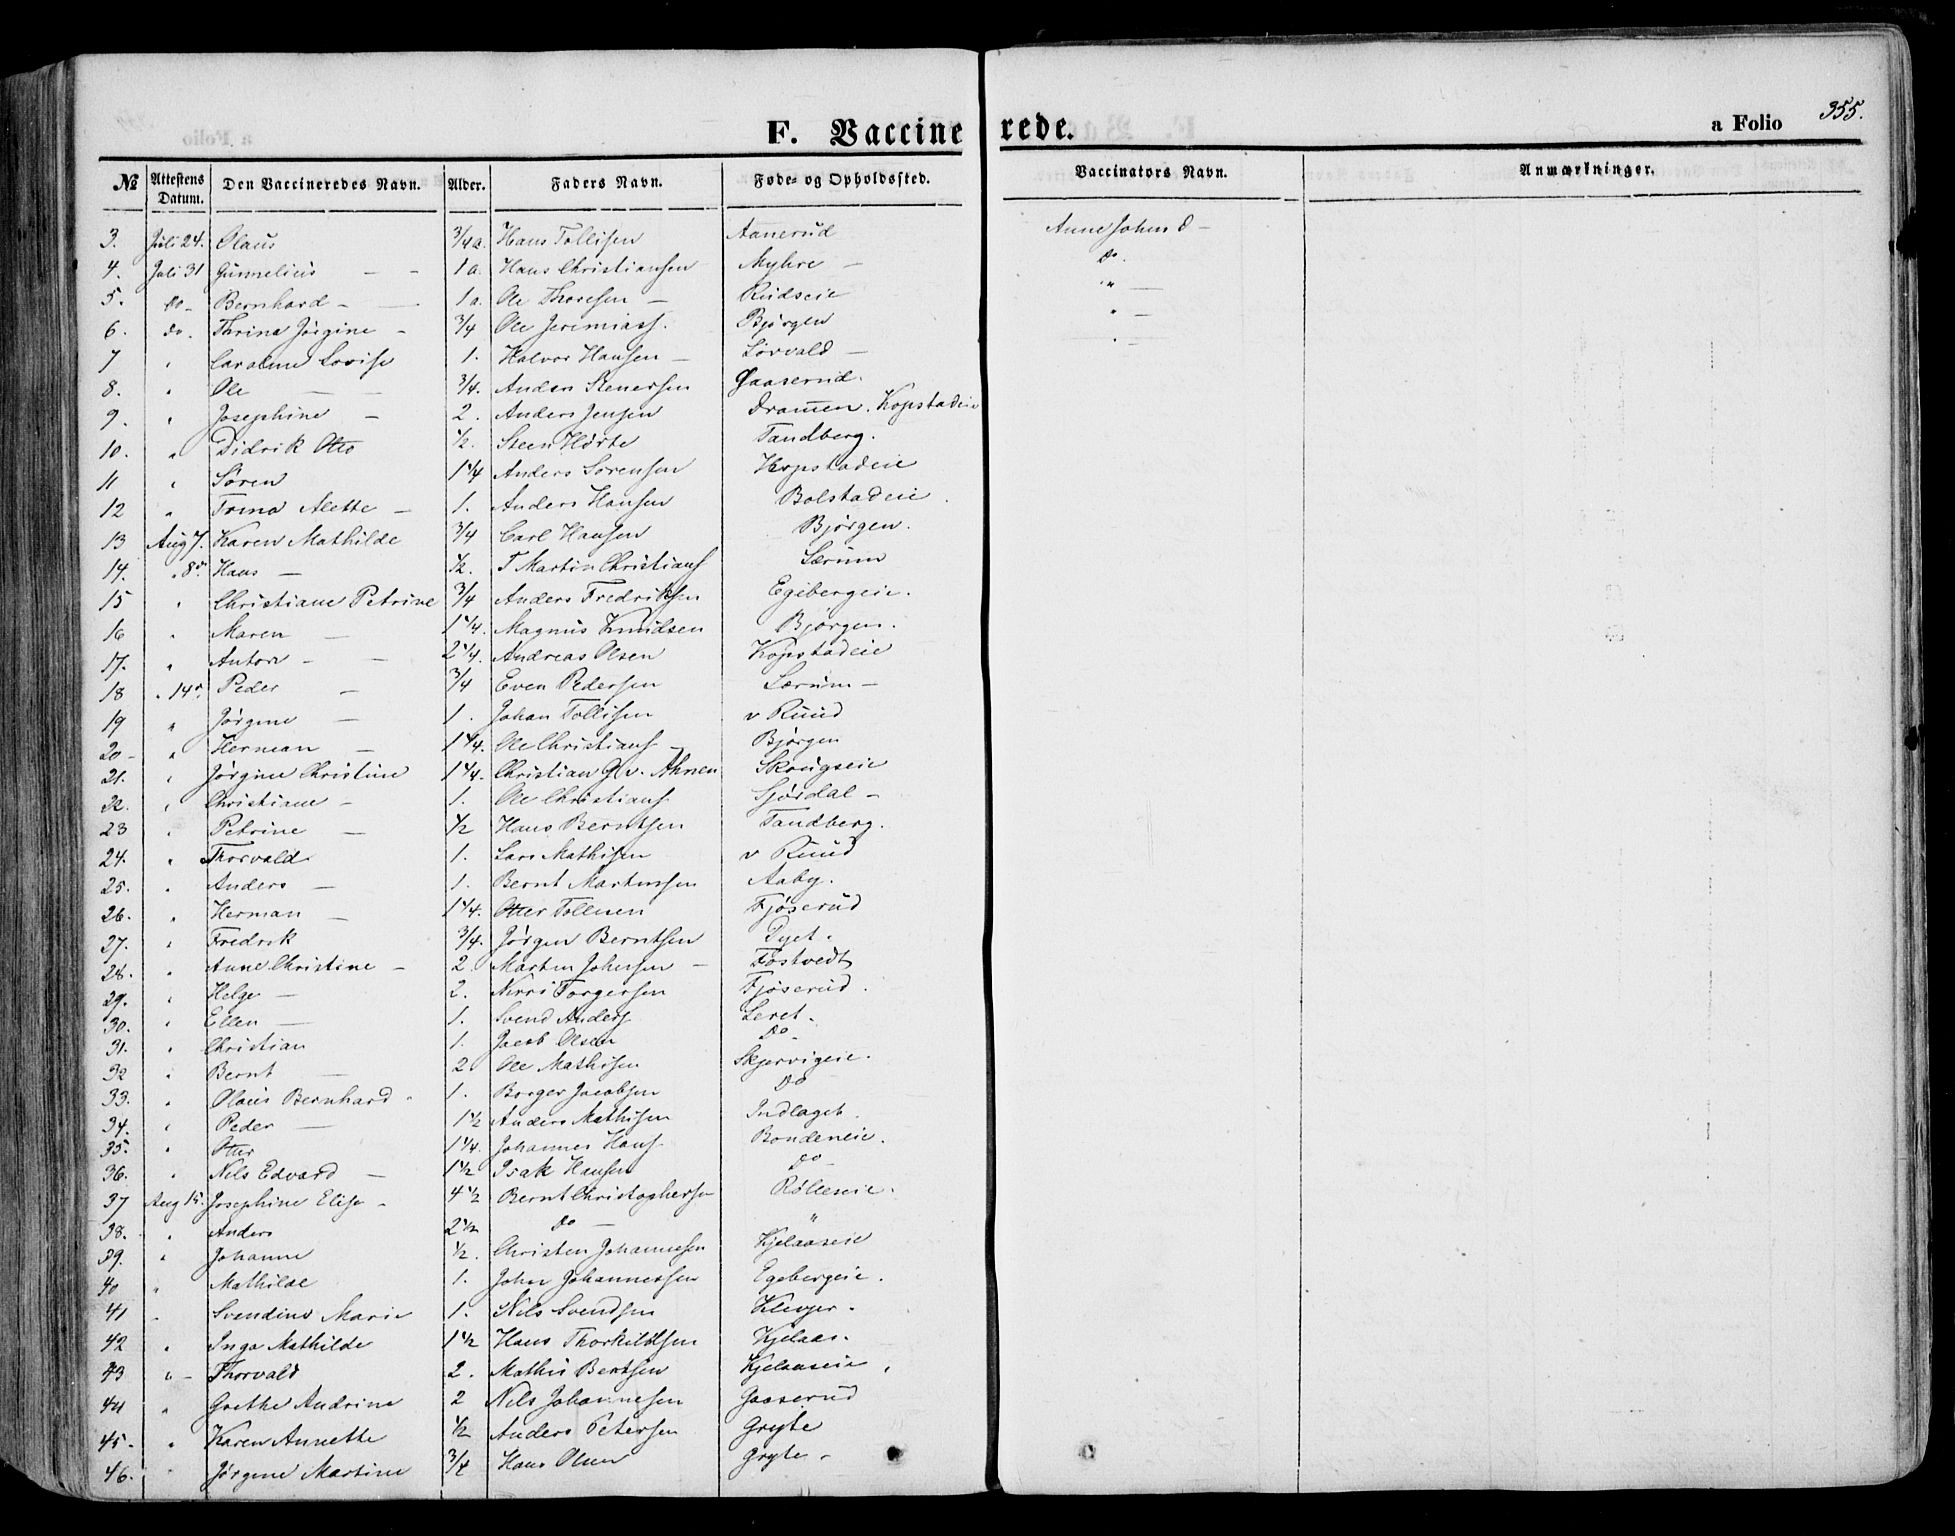 F. Vaccinerede.
a Folio 355.
№ Attestens Datum. Den Vaccineredes Navn. Alder. Faders Navn. Føde- og Opholdssted. Vaccinators Navn. Anmærkninger.
3. Juli 24. Olaus 3/4 a. Hans Tollisen Aanerud Anne Johnsd -
4. Juli 31 Gunnelius - - 1 a. Hans Christiansen Myhre - Do.
5. do - Bernhard - 1 a. Ole Thoresen - Rudseie " -
6. do. Thrine Jørgine - 3/4 Ole Jeremiass. Bjørgen " -
7 " Caroline Lovise 1. Halvor Hansen - Sørvald -
8. " Ole - - 3/4. Anders Stenersen Gaaserud.
9. " Josephine - 2. Anders Jensen Dramen. Kopstadeie
10. " Didrik Otto 1/2. Steen Hørte Tandberg.
11 " Søren 1 1/4 Anders Sørensen Kopstadeie
12 " Trina Alette - 1. Anders Hansen Bolstadeie.
13 Aug 7. Karen Mathilde 3/4 Carl Hansen Bjørgen.
14. " 8de Hans - 1/2. T Martin Christians Særum
15 " Christiane Petrine 3/4 Anders Fredriksen Egebergeie.
16 " Maren - 1 1/4. Magnus Knudsen Bjørgen.
17. " Anton - - 2 1/4. Andreas Olsen Kopstadeie
18 " 14de Peder - 3/4 Even Pedersen Særum -
19 " Jørgine - 1. Johan Tollisen v Ruud
20 - " Herman - 1 1/4. Ole Christians - Bjørgen
21. " Jørgine Christine 1 1/4. Christian G v. Ahnen Skougseie
22. " Christiane - 1. Ole Christians Sjørdal -
23 " Petrine - 1/2 Hans Berntsen Tandberg.
24. " Thorvald 1. Lars Mathisen v Ruud
25. " Anders - 1. Bernt Martinsen Aaby.
26. " Herman - 1 1/4. Otter Tollisen Fjøserud
27. " Fredrik 3/4. Jørgen Berntsen Dyet.
28. " Anne Christine - 2. Martin Johnsen - Fostvedt
29. " Helge - 2. Torgersen Fjøserud.
30. " Ellen - 1. Svend Anders Leret.
31. " Christian 1. Jacob Olsen Do
32 " Bernt - 2 Ole Mathisen Skjervigeie.
33. " Olaus Bernhard - 1. Borger Jacobsen Do
34. " Peder - 1 1/2 Anders Mathisen Indlaget.
35. " Otter 1 1/4. Johannes Hans Bondeneie.
36. " Nils Edvard - 1 1/2 Isak Hansen Do -
37 Aug 15. Josephine Elise - 4 1/2 Bernt Christophersen Rølleneie.
38. " Anders 2 1/2 Do - "
39. " Johanne 1/2. Christen Johannesen Kjelaaseie
40 " Mathilde 1. Johan Johannessen Egebergeie.
41 " Svendine Marie 1. Nils Svendsen Klevjer.
42 " Inga Mathilde 1 1/2 Hans Thorkildsen Kjelaas.
43 " - Thorvald 2. Mathis Bentsen Kjelaaseie.
44 " Grethe Andrine 2 Nils Johannesen Gaaserud
45. " Karen Annette 1/2 Anders Petersen Gryte
46. " Jørgine Martine 3/4 Hans Olsen Gryte -